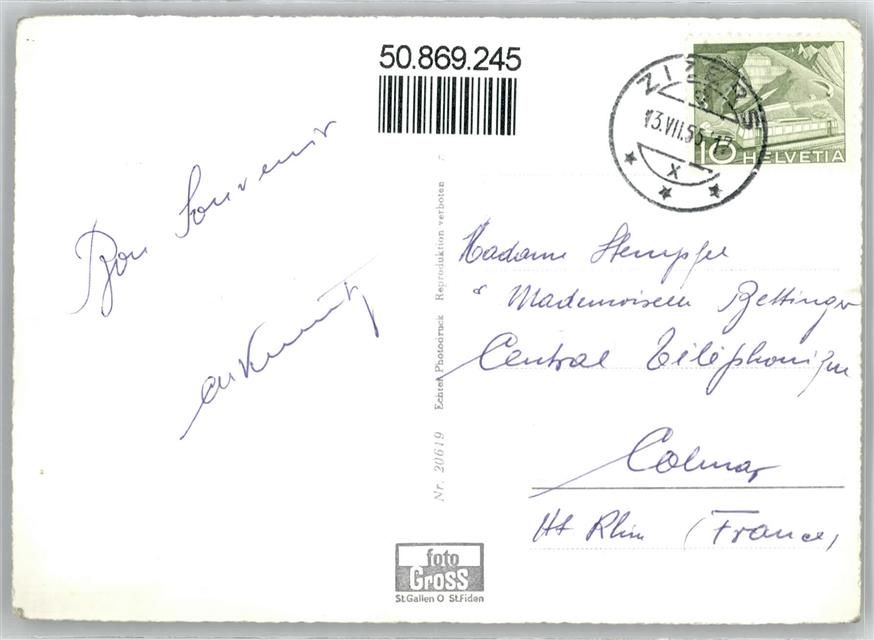 50.869.245
ZIZERS
13.VII.55-17
X
10 HELVETIA
Bon Souvenir
Madame Stempfel
Mademoiselle Bettinger
Central Téléphonique
Colmar
Ht Rhin (France)
Nr. 20619 Echter Photodruck Reproduktion verboten
foto
Gross
St.Gallen O St.Fiden